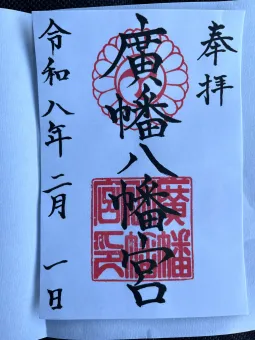 奉拝
廣幡八幡宮
令和八年二月一日